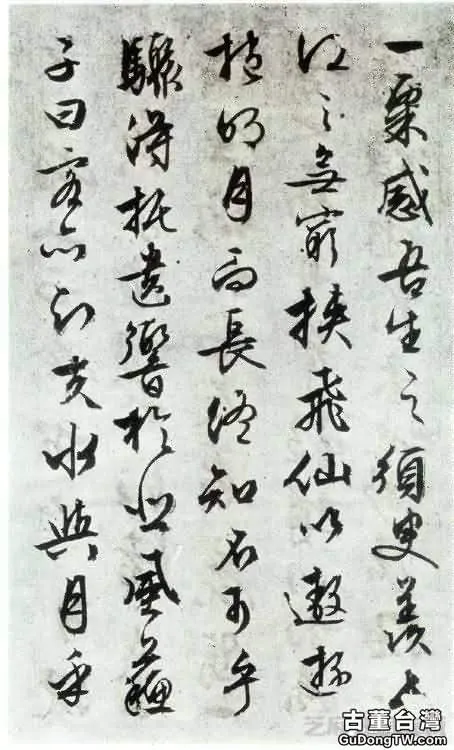 一粟感吾生之須臾羨長
江之無窮挾飛仙以遨遊
抱明月而長終知不可乎
驟得托遺響於悲風蘇
子曰客亦知夫水與月乎
古董台灣
GuDongTW.com